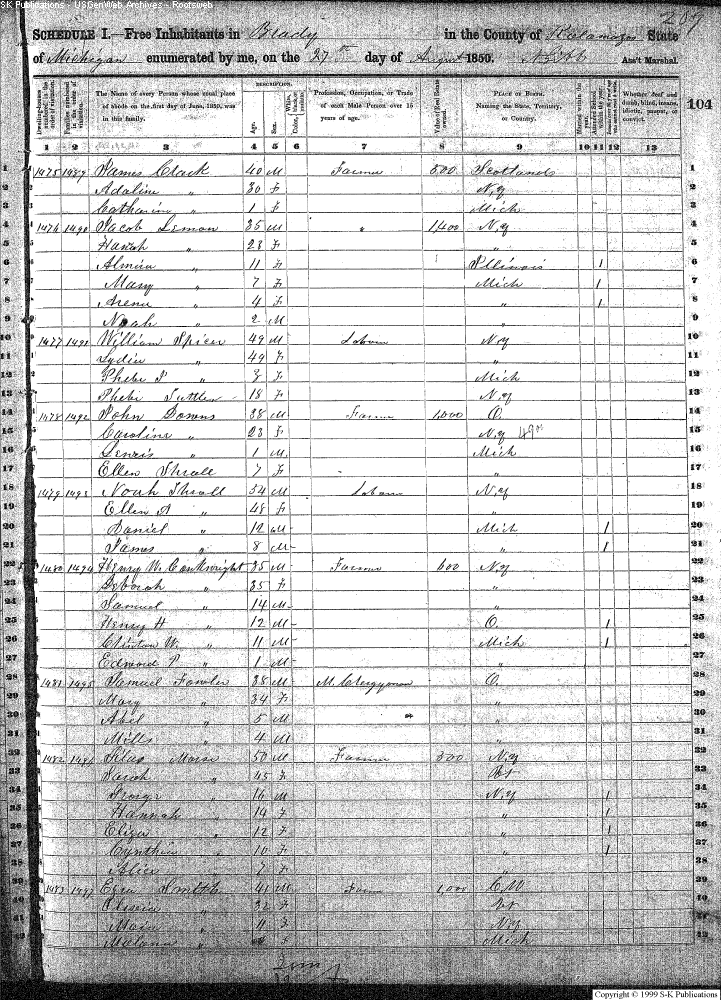 SK Publications - USGenWeb Archives - Rootsweb
209
SCHEDULE I.—Free Inhabitants in Brady in the County of Kalamazoo State
of Michigan enumerated by me, on the 27th day of August 1850. Ass't Marshal.
104
DESCRIPTION.
Dwelling-houses numbered in the order of visitation.
Families numbered in the order of visitation.
The Name of every Person whose usual place of abode on the first day of June, 1850, was in this family.
Age.
Sex.
Color, White, black, or mulatto.
Profession, Occupation, or Trade of each Male Person over 15 years of age.
Value of Real Estate owned.
PLACE OF BIRTH. Naming the State, Territory, or Country.
Married within the year.
Attended School within the year.
Whether deaf and dumb, blind, insane, idiotic, pauper, or convict.
1 2 3 4 5 6 7 8 9 10 11 12 13
1 1475 1489 James Clack 40 M Farmer 800 Scotland 1
2 Adaline " 30 F N.Y 2
3 Catharine " 1 F Mich 3
4 1476 1490 Jacob Lemon 35 M " 1400 N.Y 4
5 Hannah " 23 F " 5
6 Almira " 11 F Illinois 1 6
7 Mary " 7 F Mich 1 7
8 " 4 F " 1 8
9 Noah " 2 M " 9
10 1477 1491 William Spicer 49 M Labour N.Y 10
11 Lydia " 49 F " 11
12 Phebe " 3 F Mich 12
13 Phebe Tuttle 18 F N.Y 13
14 1478 1492 John Downs 38 M Farmer 1,000 O. 14
15 Caroline " 23 F N.Y 15
16 " 1 M Mich 16
17 Ellen Thrall 7 F " 17
18 1479 1493 Noah Thrall 54 M Labour N.Y 18
19 Ellen A " 48 F " 19
20 Daniel " 12 M Mich 1 20
21 James " 8 M " 1 21
22 1480 1494 Henry W. 35 M Farmer 600 N.Y 22
23 Deborah " 35 F " 23
24 Samuel " 14 M " 24
25 Henry H " 12 M O. 1 25
26 Clinton W. " 11 M Mich 1 26
27 Edmond P " 1 M " 27
28 1481 1495 Samuel Fowler 38 M M. Clergyman O. 28
29 Mary " 34 F " 29
30 Abel " 5 M " 30
31 Mills " 4 M " 31
32 1482 1496 Silas Morse 50 M Farmer 500 N.Y 32
33 Sarah " 45 F Vt 33
34 George " 16 M N.Y 1 34
35 Hannah " 14 F " 1 35
36 Eliza " 12 F " 1 36
37 Cynthia " 10 F " 1 37
38 Alice " 7 F " 38
39 1483 1497 Ezra Smith 41 M Farm 1,000 C.W 39
40 " 32 F Vt 40
41 " 11 F N.Y 41
42 " F Mich 42
Copyright © 1999 S-K Publications